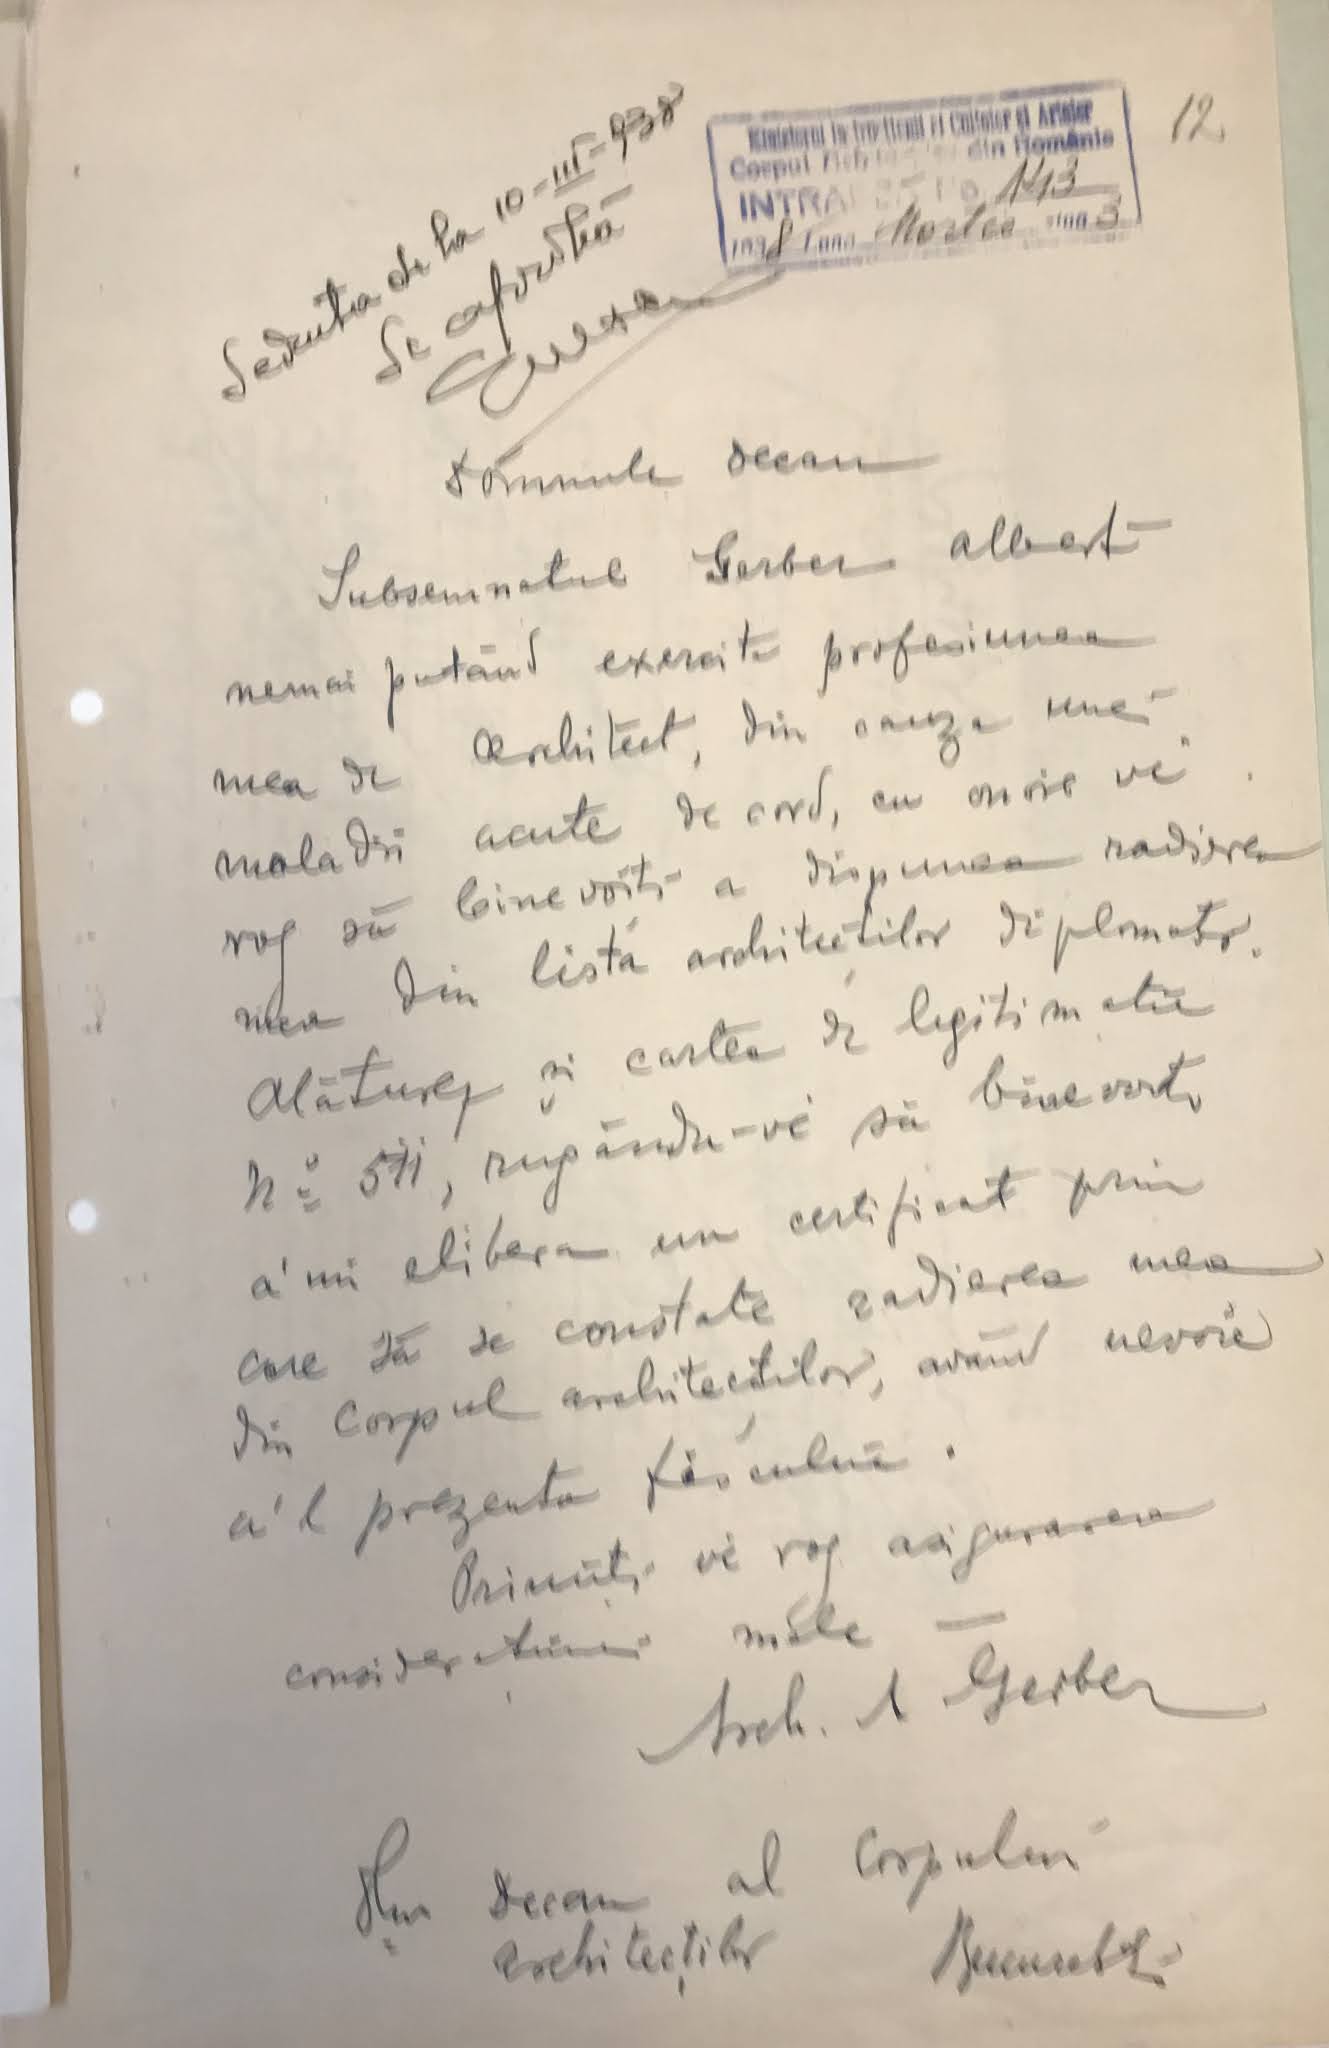 12
Ministerul Instrucțiunii al Cultelor și Artelor
Corpul Arhitecților din România
INTRARE No. 143
1938 Luna Martie ziua 3
Ședința de la 10-III-938
Se aprobă
Domnule Decan
Subsemnatul Gerber Albert
nemai putând exercita profesiunea
mea de architect, din cauza unei
maladii acute de cord, cu onore vĕ
rog să binevoiți a dispunea radierea
mea din lista architecților diplomați.
Alăturez și cartea de legitimație
No 511, rugându-vĕ să binevoiți
a'mi elibera un certificat prin
care să se constate radierea mea
din Corpul architecților, având nevoie
a'l prezenta fiscului.
Primiți vĕ rog asigurarea
considerațiunei mele —
Arch. A Gerber
Dlui Decan al Corpului
architecților București